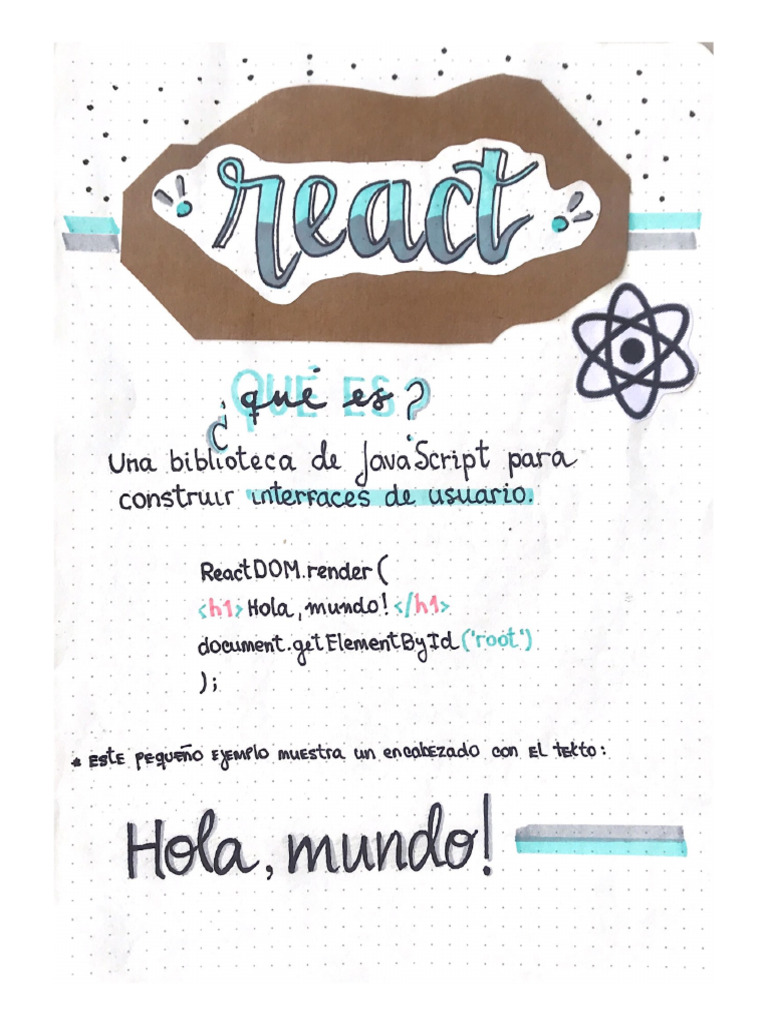 react
¿qué es?
Una biblioteca de JavaScript para
construir interfaces de usuario.
ReactDOM.render(
<h1>Hola, mundo!</h1>
document.getElementById('root')
);
* Este pequeño ejemplo muestra un encabezado con el texto:
Hola, mundo!